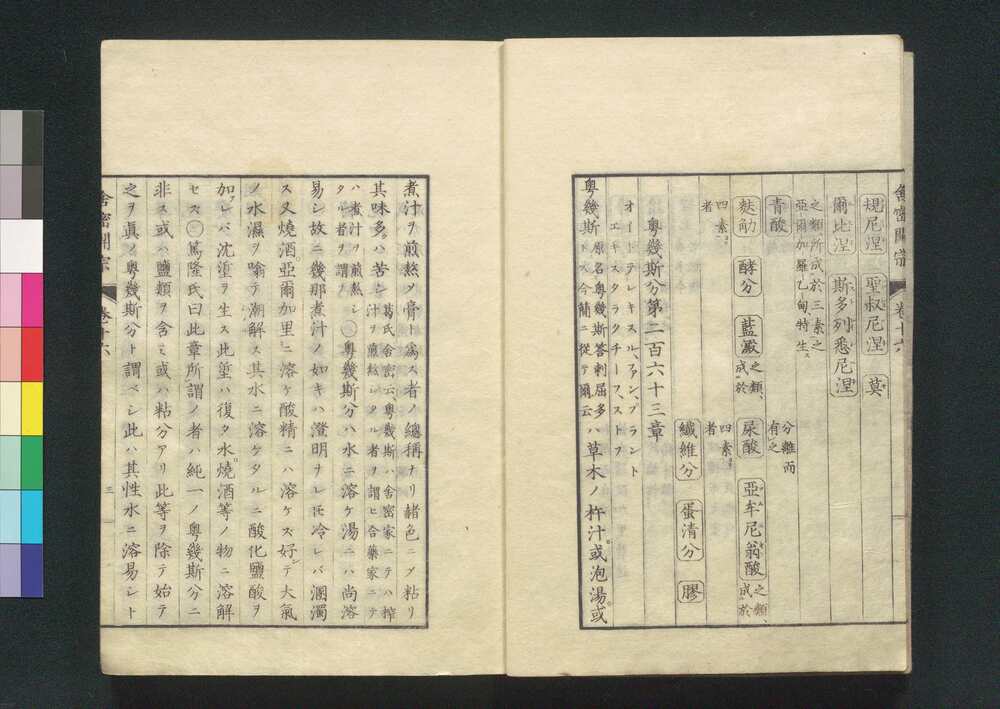 舎密開宗 卷十六
規尼涅 聖叔尼涅 莫
爾比涅 斯多列悉尼涅
之類所成於三素之
亞爾加羅乙甸特生ス
分離而
有之
青酸
麩勍 酵分 藍澱 之類、
成於
尿酸 亞牟尼翁酸 之類、
成於
四素ヲ
者
四素ヲ
者
纖維分 蛋清分 膠
粤幾斯分第二百六十三章
オードテレキスル、ファン、プラント
エキスタラクチーフ、ストフ
粤幾斯 原名粤幾斯答剌屈多
ト、今簡ニ從テ爾云 ハ草木ノ杵汁。或泡湯。或
煮汁ヲ煎熬ソ膏ト爲ス者ノ總稱ナリ赭色ニソ粘リ
其味多ハ苦シ 葛氏、舎密云、粤幾斯ハ舎密家ニテハ搾
汁ヲ煎熬シタル者ヲ謂ヒ合藥家ニテ
ハ煮汁ヲ煎熬シ
タル者ヲ謂フ ○粤幾斯分ハ水ニ溶ケ湯ニハ尚溶
易シ故ニ幾那煮汁ノ如キハ澄明ナレ𪜈冷レバ溷濁
ス又燒酒。亞爾加里ニ溶ケ酸精ニハ溶ケズ好テ大氣
ノ水濕ヲ噏テ潮解ス其水ニ溶ケタルニ酸化鹽酸ヲ
加レバ沈垽ヲ生ス此垽ハ復タ水燒酒等ノ物ニ溶解
セズ○篤隆氏曰此章所謂ノ者ハ純一ノ粤幾斯分ニ
非ス或ハ鹽類ヲ含ミ或ハ粘分アリ此等ヲ除テ始テ
之ヲ眞ノ粤幾斯分ト謂ベシ此ハ其性水ニ溶易シト
舎密開宗 卷十六 三